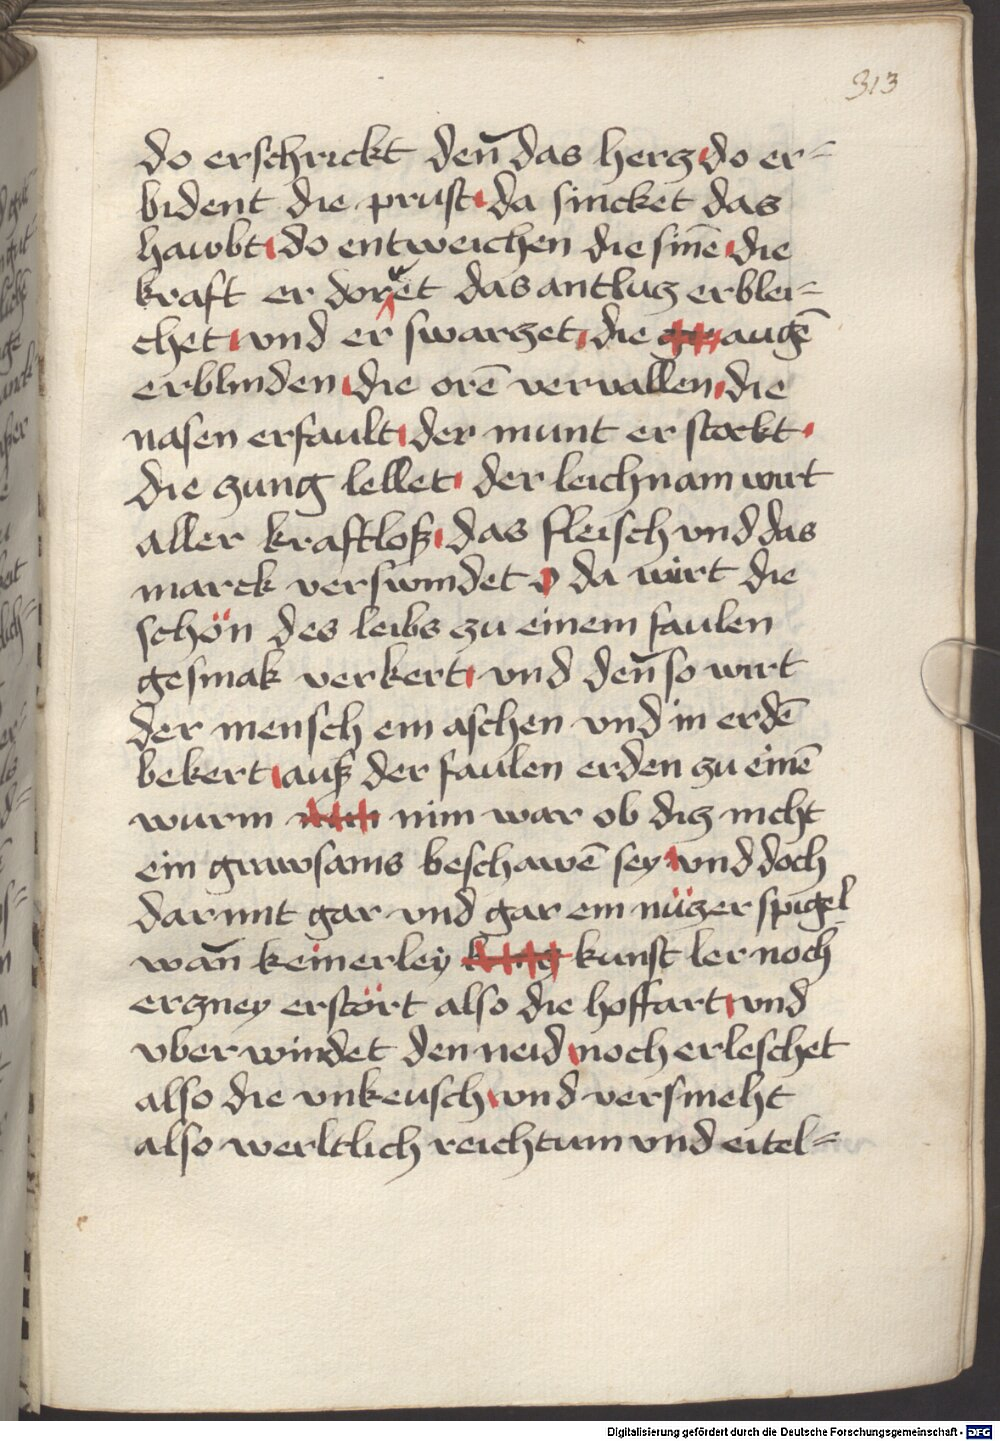 313
do erschrickt den̄ das hercz do er=
bident die prust da sincket das
hawbt do entweichen die sin̄e die
kraft er dorret das antlucz erblei=
chet vnd er swarczet die augē
erblinden die orē vervallen die
nasen erfault der munt er stockt
die zung lellet der leichnam wirt
aller kraftloß das fleisch vnd das
marck verswindet da wirt die
schön des leibs zu einem faulen
gesmak verkert vnd den̄ so wirt
der mensch ein aschen vnd in erdē
bekert auß der faulen erden zu einē
wurm nim war ob dicz nicht
ein grawsams beschawē sey vnd doch
darinnt gar vnd gar ein nüczer spigel
wan̄ keinerley kunst ler noch
erczney erstört also die hoffart vnd
vber windet den neid noch erleschet
also die vnkeusch vnd versmeht
also werltlich reichtum vnd eitel=
Digitalisierung gefördert durch die Deutsche Forschungsgemeinschaft - DFG